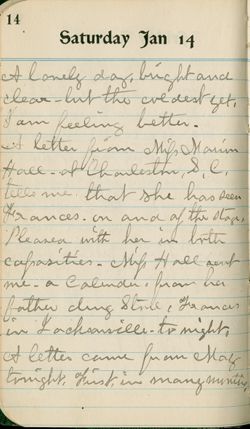 14
Saturday Jan 14
A lonely day, bright and
clear - but the coldest yet,
I am feeling better.
A letter from Miss Marion
Hall - of Charleston, S, C,
tells me that she has seen
Frances - on and off the stage,
Pleased with her in both
capasities - Miss Hall sent
me - a Calender, from her
father drug Store, Frances
in Jacksonville - to night,
A letter came from May
tonight, First, in many months,